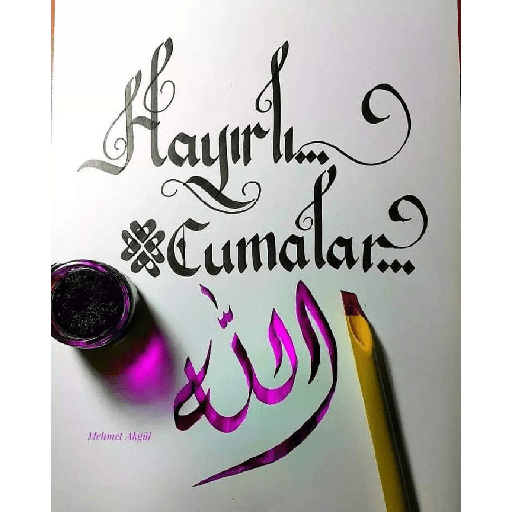 Hayırlı...
Cumalar...
الله
Mehmet Akgül